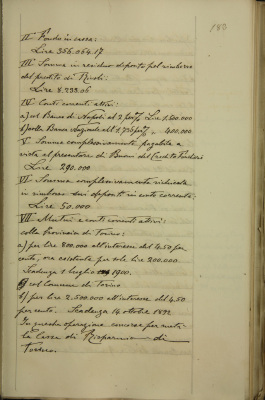 180
II Fondo in cassa:
Lire 356.064.17
III Somma in residuo disposta pel rimborso
del prestito di Rivoli:
Lire 8.233.06
IV Conti correnti attivi:
a) col Banco di Napoli al 2 per % Lire 1.500.000
b) colla Banca Nazionale all' 1.75 per % " 400.000
V Somma complessivamente pagabile a
vista al presentatore di Buoni del Credito Fondiario
Lire 290.000
VI Somma complessivamente richiesta
in rimborso sui depositi in conto corrente:
Lire 50.000
VII Mutui e conti correnti attivi:
colla Provincia di Torino:
a) per lire 800.000 all'interesse del 4.50 per
cento, ora esistente per sole lire 200.000
Scadenza 1 luglio 1900.
col Comune di Torino
b) per lire 2.500.000 all'interesse del 4.50
per cento. Scadenza 14 ottobre 1892
In questa operazione concorse per metà
la Cassa di Risparmio di
Torino.